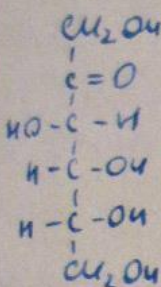 CH₂OH
C=O
HO-C-H
H-C-OH
H-C-OH
CH₂OH